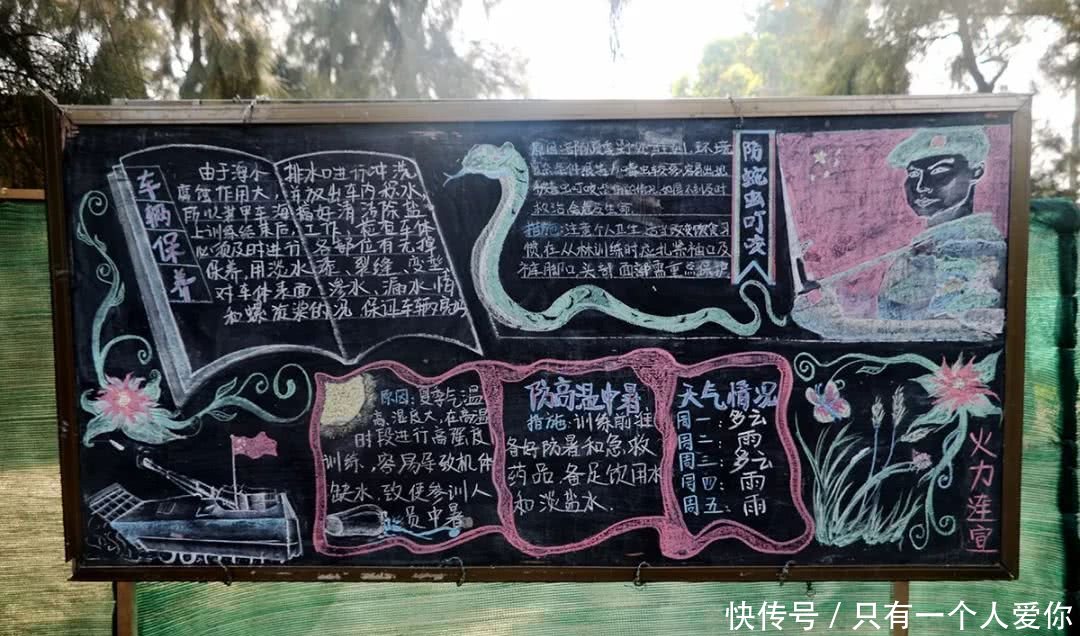 车辆保养
由于海水
腐蚀作用大，
所以装甲车海
上训练结束后
必须及时进行
保养，用淡水
对车体表面
和螺旋桨的
排水口进行冲洗
并放出车内积水，
搞好清洁除盐
工作，检查车体
各部位有无掉
漆、裂缝、变型
、渗水、漏水情
况，保证车辆完好
防蛇虫叮咬
原因：环境
救治会危及生命
措施：注意个人卫生，适当改变饮食习
惯，在丛林训练时应扎紧袖口及
裤脚口，头部、面部需重点保护
原因：夏季气温
高、湿度大，在高温
时段进行高强度
训练，容易导致机体
缺水，致使参训人
员中暑
防高温中暑
措施：训练前准
备好防暑和急救
药品，备足饮用水
和淡盐水.
天气情况
周一：多云
周二：雨
周三：多云
周四：雨
周五：雨
火力连宣
快传号 / 只有一个人爱你